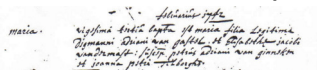 februarius 1742
maria. vigesima tertia bapta est maria filia Legitima
Digmanni adriani van gastel et Elisabetha jacobi
vandermast: susceptores petrus adriani van ginneken
et joanna petri